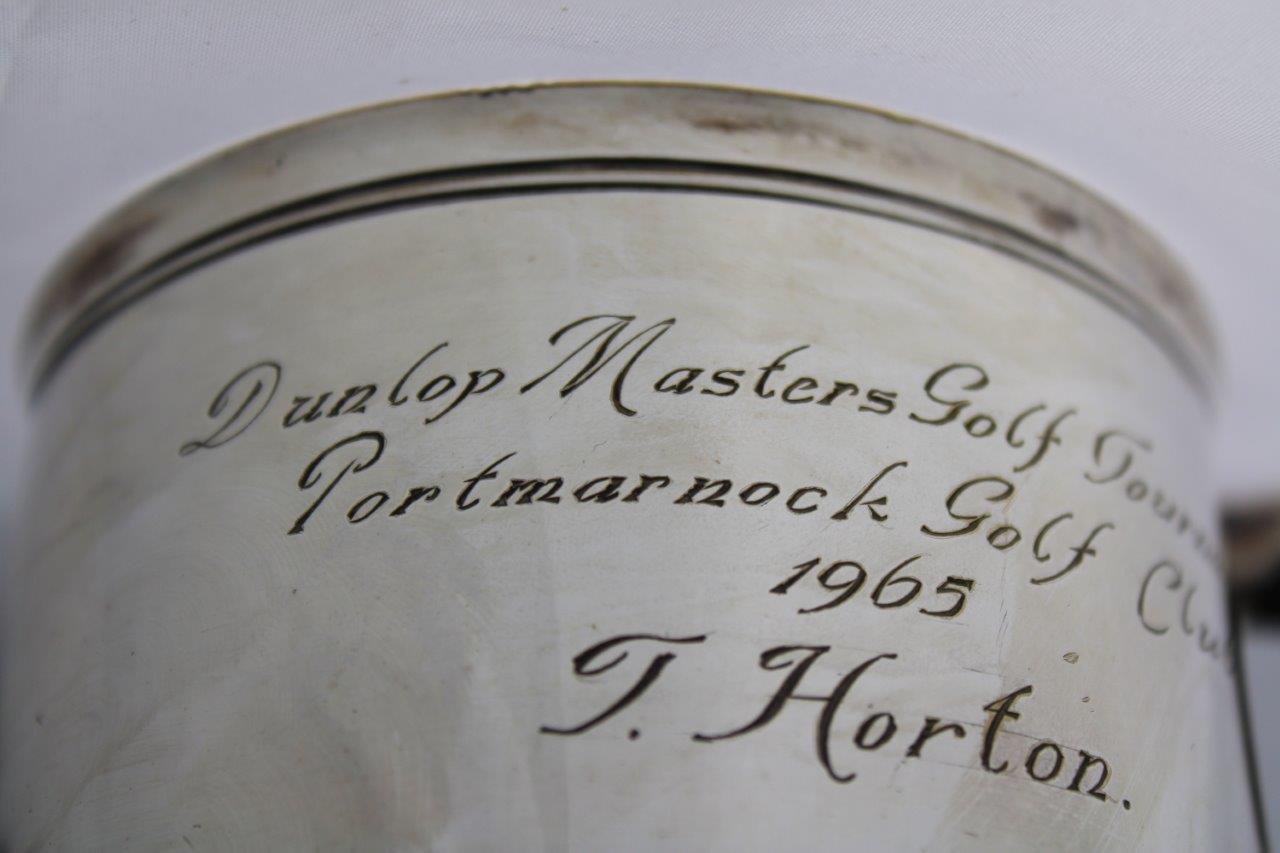 Dunlop Masters Golf
Portmarnock Golf Club
1965
T. Horton.